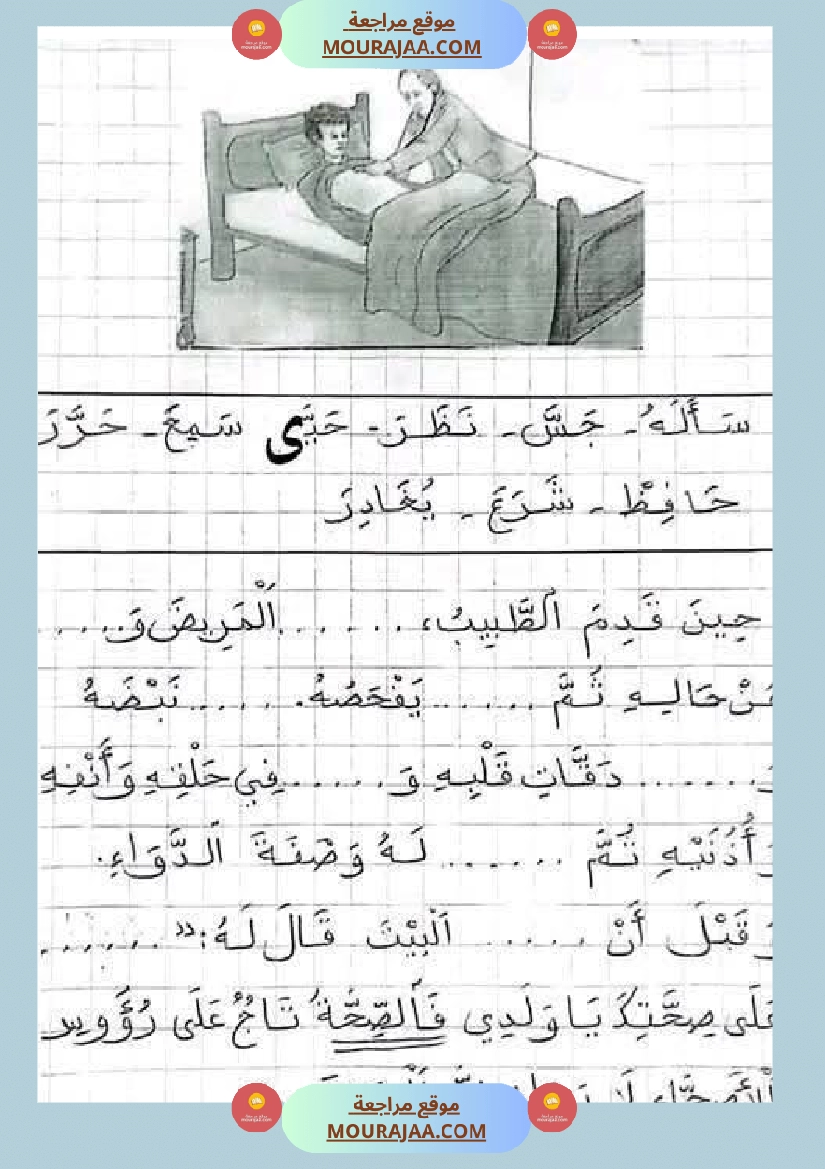 موقع مراجعة
MOURAJAA.COM
سَأَلَهُ - جَسَّ - نَظَرَ - حَيَّى سَمِعَ - حَرَّرَ
حَافِظْ - شَرَعَ - يُغَادِرَ
حِينَ قَدِمَ ٱلطَّبِيبُ، ...... ٱلْمَرِيضَ وَ.....
عَنْ حَالِهِ ثُمَّ ...... يَفْحَصُهُ. ...... نَبْضَهُ
وَ....... دَقَّاتِ قَلْبِهِ وَ...... فِي حَلْقِهِ وَأَنْفِهِ
وَأُذُنَيْهِ ثُمَّ ...... لَهُ وَصْفَةَ ٱلدَّوَاءِ.
وَقَبْلَ أَنْ ..... ٱلْبَيْتَ قَالَ لَهُ: " ......
عَلَى صِحَّتِكَ يَا وَلَدِي فَٱلصِّحَّةُ تَاجٌ عَلَى رُؤُوسِ
موقع مراجعة
MOURAJAA.COM